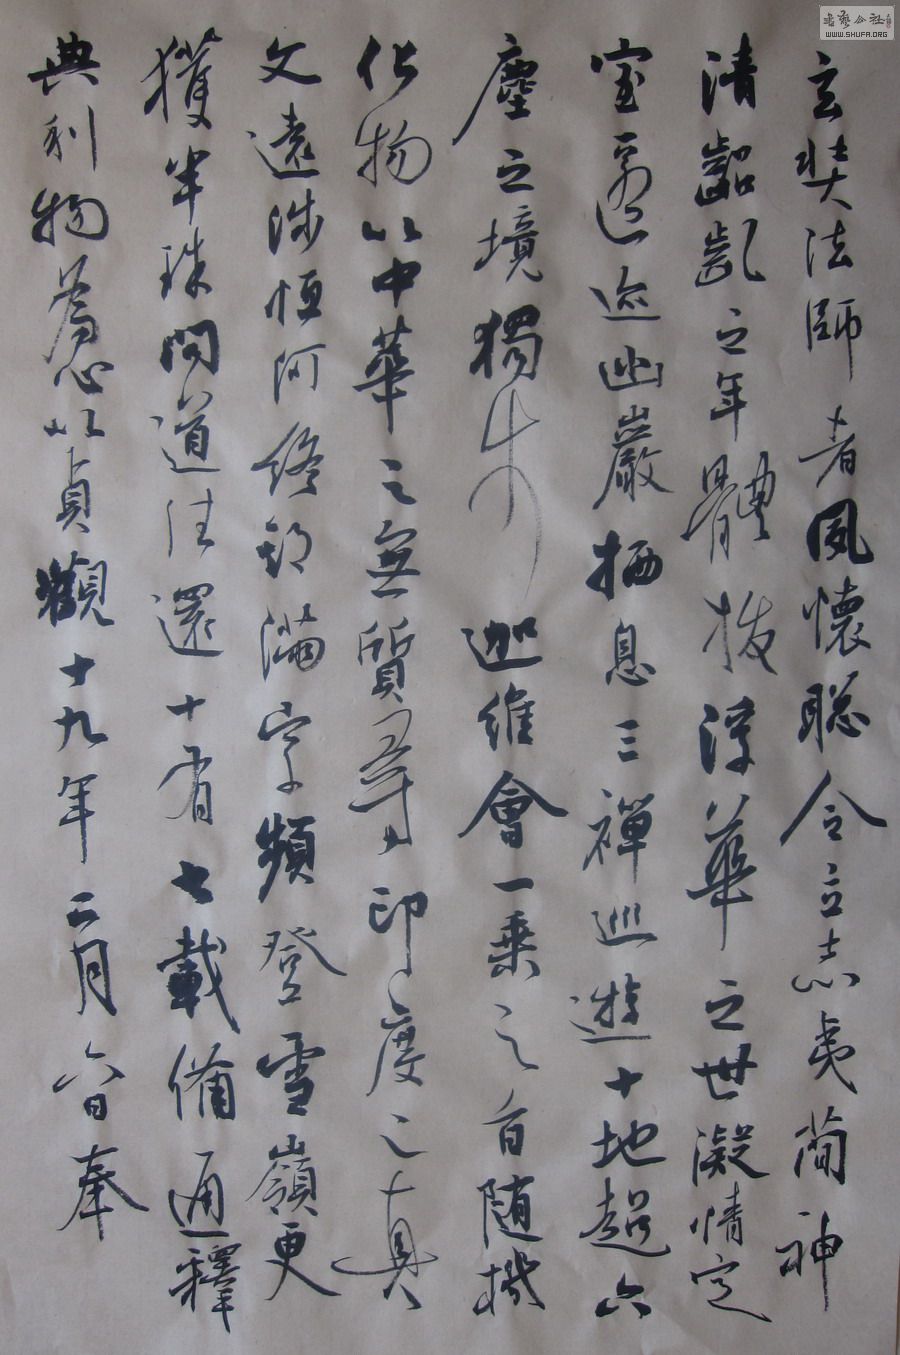 玄奘法師者夙懷聡令立志夷簡神
清齠齔之年體拔浮華之世凝情定
室匿迹幽巖栖息三禪巡遊十地超六
塵之境獨步迦維會一乗之旨随機
化物以中華之無質尋印度之真
文遠涉恒河終期滿字頻登雪嶺更
獲半珠問道往還十有七載備通釋
典利物為心以貞觀十九年二月六日奉
書藝公社
WWW.SHUFA.ORG